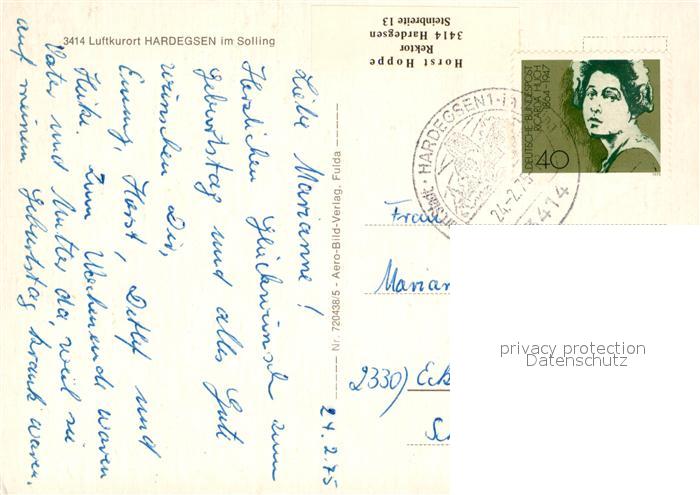 3414 Luftkurort HARDEGSEN im Solling
Horst Hoppe
Rektor
3414 Hardegsen
Steinbreite 13
DEUTSCHE BUNDESPOST
RICARDA HUCH
1864-1947
40
HARDEGSEN 1
24.-2.75
3414
Liebe Marianne!
Herzlichen Glückwunsch zum
Geburtstag und alles Gute
wünschen Dir,
Emmy, Horst, Detlef und
Heike. Zum Wochenende waren
Vater und Mutter da, weil sie
auf meinem Geburtstag krank waren.
24.2.75
Nr. 720438/5 - Aero-Bild-Verlag, Fulda
Frau
Marian
2330) Eck
privacy protection
Datenschutz